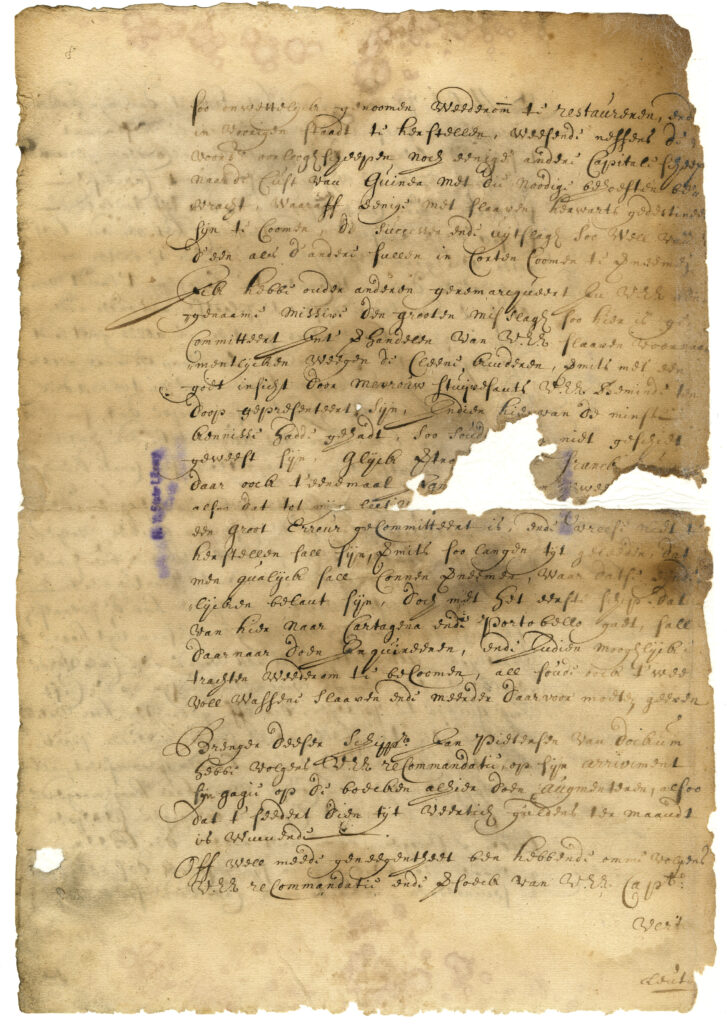 soo onwettelyck genoomen Weederom te restaureren, ende
in Voorigen standt te herstellen, weesende neffens de
voors. oorloghscheepen noch eenige andere Capitale scheep
naar de Cust van Guinea met die noodige behoeften be
vracht, waaraff eenige met slaaven herwarts gedestinee
syn te Coomen, de successen ende uytslagh soo well van
d'een als d'andere sullen in Corten Coomen te Verneeme
Ick hebbe onder anderen geremarqueert in UEd
genaame missive den grooten misslagh soo hier is ge
Committeert int Verhandelen van UEd slaaven voornaa
mentlycken weegen de Cleene kinderen, Vermits met een
goet insicht door Mevrouw Stuivesants UEd Beminde ten
doop gepresenteert syn, Indien hier van de minste
kennisse hadde gehadt, soo soud niet geschiet
geweest syn, Glyck Franck
daar oock t'eenemaal
alsoo dat tot
een groot Erreur geCommitteert is, ende niet te
herstellen sall syn, Vermits soo langen tyt geleeden dat
men qualyck sall Connen Verneemen, waar datse
lycken belant syn, doch met het eerste schip dat
van hier naar Cartagena ende Portobello gaet, sall
daarnaar doen Enquireeren, ende Indien mooghlyck is
trachten Weederom te beCoomen, all soude oock twee
voll wassene slaaven ende meerder daarvoor moeten geeven
Brenger deeser Schippr Jan Pietersen van Dockum
hebbe volgens UEd reCommandatie, op syn arrivement
syn gagie op de boecken alhier doen augmenteren, alsoo
dat t'seedert dien tyt Veertich guldens ter maandt
is Winnende
Off well meede geneegentheet ben hebbende omme volgens
UEd reCommandatie ende Versoeck van UEd Capt:
N. Y. State Library